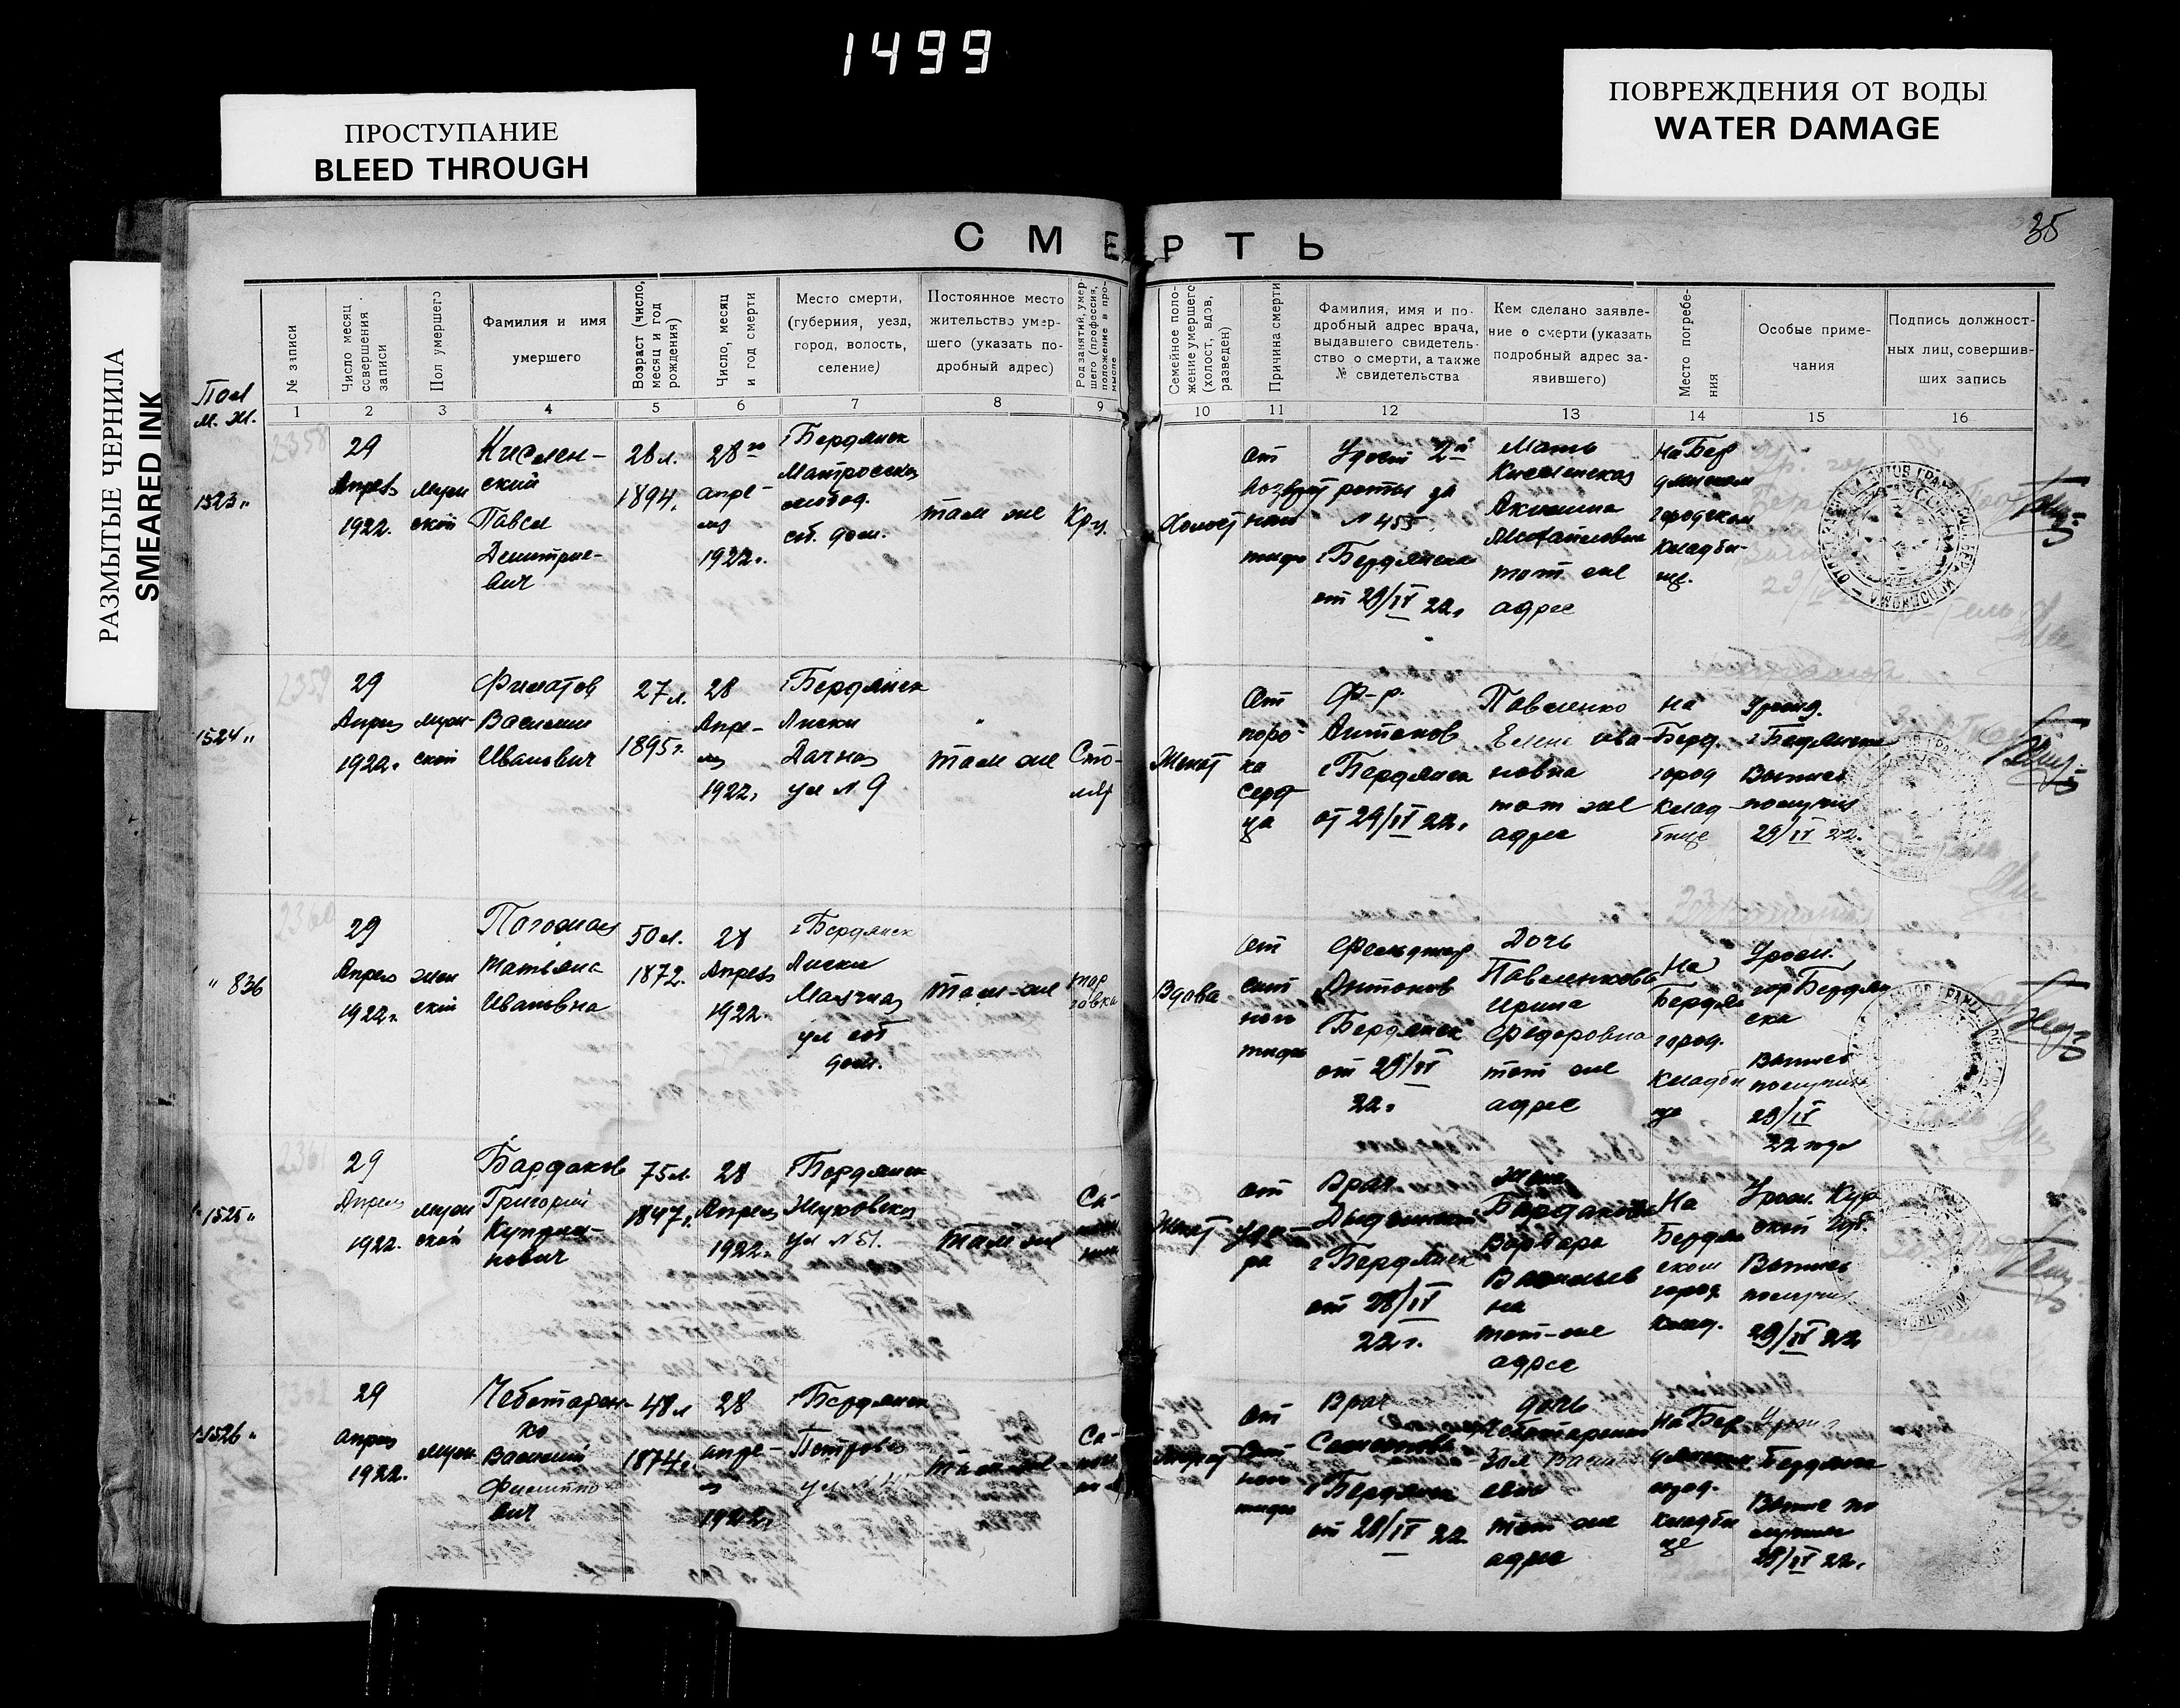 1499
ПРОСТУПАНИЕ
BLEED THROUGH
ПОВРЕЖДЕНИЯ ОТ ВОДЫ
WATER DAMAGE
РАЗМЫТЫЕ ЧЕРНИЛА
SMEARED INK
35
СМЕРТЬ
Пол
м. ж.
№ записи
Число месяц
совершения
записи
Пол умершего
Фамилия и имя
умершего
Возраст (число,
месяц и год
рождения)
Число, месяц
и год смерти
Место смерти,
(губерния, уезд,
город, волость,
селение)
Постоянное место
жительство умер-
шего (указать по-
дробный адрес)
Род занятий, умер-
шего (профессия,
положение в про-
мысле
Семейное поло-
жение умершего
(холост, вдов,
разведен)
Причина смерти
Фамилия, имя и по-
дробный адрес врача,
выдавшего свидетель-
ство о смерти, а также
№ свидетельства
Кем сделано заявле-
ние о смерти (указать
подробный адрес за-
явившего)
Место погребе-
ния
Особые приме-
чания
Подпись должност-
ных лиц, совершив-
ших запись
1 2 3 4 5 6 7 8 9 10 11 12 13 14 15 16
2358
1523
29
Апреля
1922.
мужской
Кислен-
ский
Павел
Дмитрие-
вич
28 л.
1894.
28го
апре-
ля
1922г.
г Бердянск
Матросская
слобод.
соб. дом.
там же
Холост
от
возврат
ного
тифа
2й
роты за
№ 455
г Бердянска
от 29/IV 22г
Мать
Кисленская
Акулина
Михайловна
тот же
адрес
На Бер
дянском
городском
кладби-
ще.
2359
1524
29
Апреля
1922г
муж-
ской
Филатов
Василий
Иванович
27 л.
1895г.
28
Апре-
ля
1922г
г Бердянск
Лиски
Дачная
ул № 9
там же
Сто-
ляр
Женат
от
поро-
ка
серд
ца
Ф-р.
Антонов
г Бердянск
от 29/IV 22г
Павленко
Елена Ива-
новна
тот же
адрес
на
Берд.
город
клад
бище
Урожд.
г Бердянска
Выпись
получил
29/IV 22.
2360
836
29
Апреля
1922г
жен
ский
Татьяна
Ивановна
50 л.
1872г.
28
Апреля
1922г.
г Бердянск
Лиски
ул соб
дом.
там-же
тор
говка
Вдова
от
сып
ного
тифа
Фельдшер
Антонов
г Бердянск
от 29/IV
22г
Дочь
Павленкова
Ирина
Федоровна
тот же
адрес
На
Бердян
город.
кладби
ще
Урож.
гор Бердян
ска
Выпись
получил
29/IV
22 года
2361
1525
29
Апреля
1922.
муж
ской
Бардаков
Григорий
Куприя-
нович
75 л.
1847г
28
Апреля
1922г
г Бердянск
Жуковская
ул № 51.
там же
Женат
от
уда-
ра
Врач
г Бердянск
от 28/IV
22г.
жена
Бардакова
Варвара
Васильев
на
тот-же
адрес
На
Бердян
ском
город
клад.
Урож. Кур
ской губ.
Выпись
получил
29/IV 22
2362
1526
29
апреля
1922.
муж
Чеботарен-
ко
Василий
Филиппо
вич
48 л
1874г.
28
апре-
ля
1922г
г Бердянск
Петровск
там же
от
сып
ного
тифа
Врач
г Бердянск
от 28/IV 22
дочь
Чеботаренко
тот же
адрес
на Бер
дянском
город.
кладби
ще
Бердянск
Выпись по
лучил
29/IV 22г